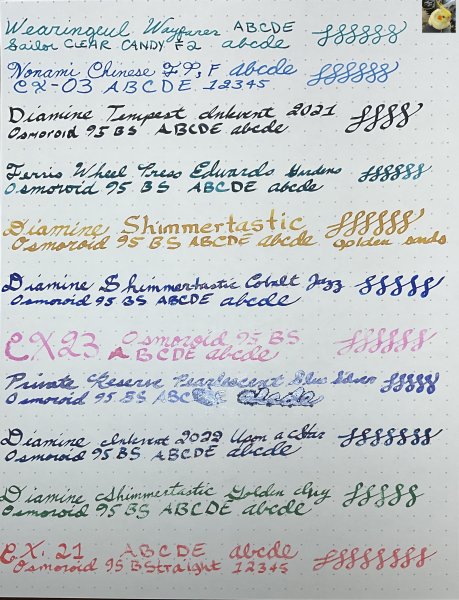 Wearingeul Wayfarer ABCDE
Sailor CLEAR CANDY F2 abcde
Nonami Chinese F.P., F abcde
CX-03 ABCDE 12345
Diamine Tempest Inkvent 2021
Osmoroid 95 BS ABCDE abcde
Ferris Wheel Press Edwards Gardens
Osmoroid 95 BS ABCDE abcde
Diamine Shimmertastic
Osmoroid 95 BS ABCDE abcde Golden Sands
Diamine Shimmertastic Cobalt Jazz
Osmoroid 95 BS ABCDE abcde
CX23 Osmoroid 95 BS
ABCDE abcde
Private Reserve Pearlescent Blue Silver
Osmoroid 95 BS ABC
Diamine Inkvent 2022 Upon a Star
Osmoroid 95 BS ABCDE abcde
Diamine Shimmertastic Golden Ivy
Osmoroid 95 BS ABCDE abcde
C.X. 21 ABCDE abcde
Osmoroid 95 BStraight 12345